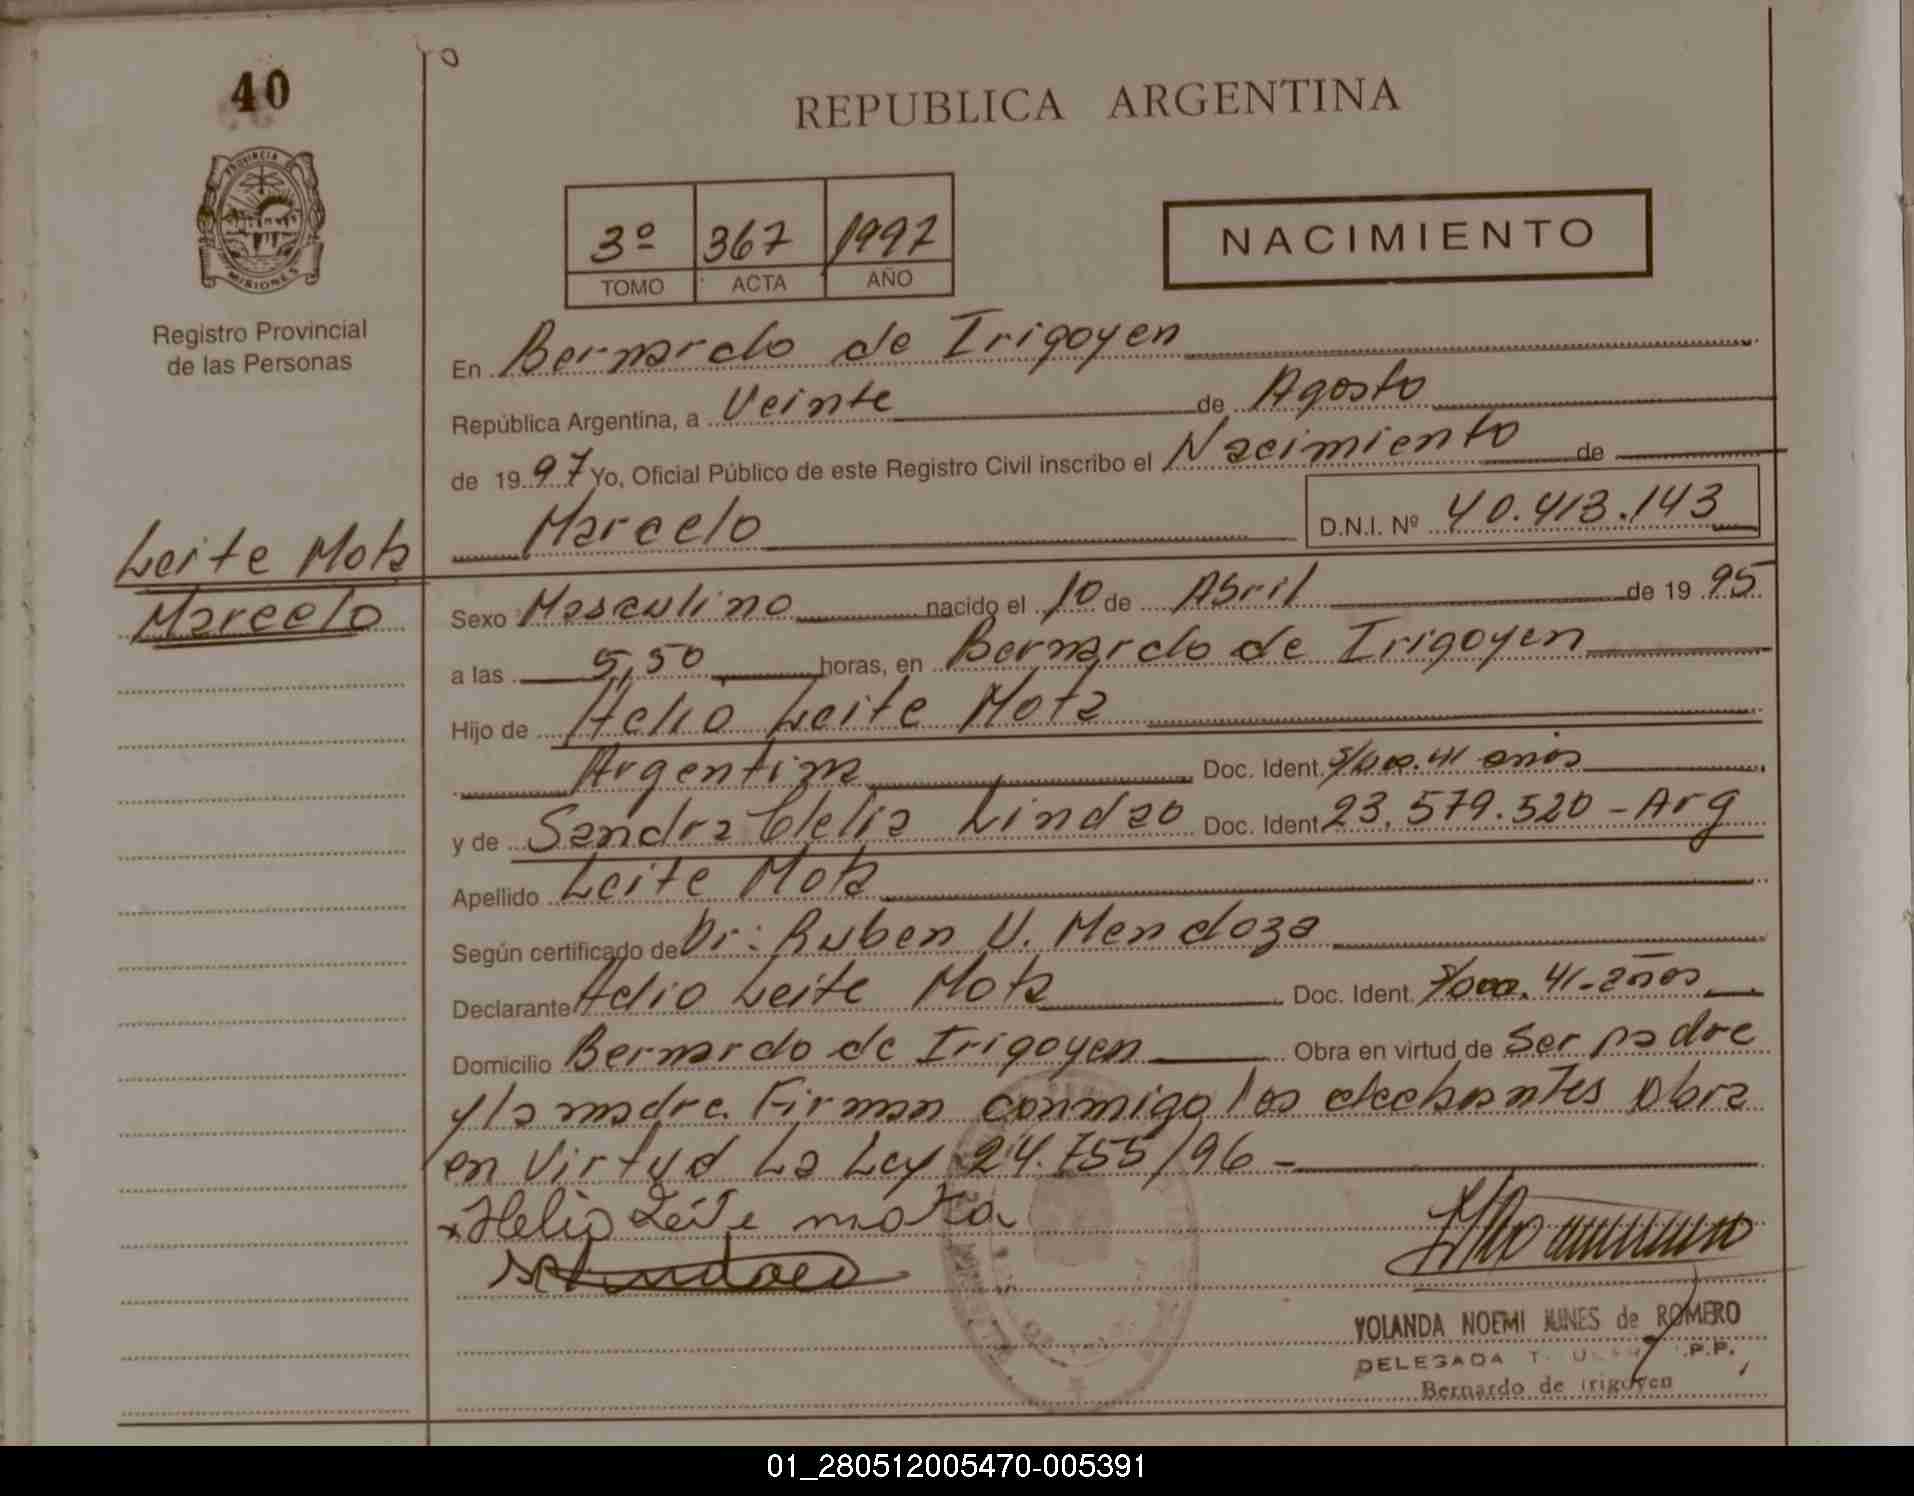 40
REPUBLICA ARGENTINA
PROVINCIA DE
MISIONES
3º 367 1997
TOMO ACTA AÑO
NACIMIENTO
Registro Provincial
de las Personas
En Bernardo de Irigoyen
República Argentina, a Veinte de Agosto
de 1997 Yo, Oficial Público de este Registro Civil inscribo el Nacimiento de
Marcelo D.N.I. Nº 40.413.143
Leite Mota
Marcelo
Sexo Masculino nacido el 10 de Abril de 1995
a las 5,50 horas, en Bernardo de Irigoyen
Hijo de Helio Leite Mota
Argentina Doc. Ident. s/doc. 41 años
y de Sandra Clelia Lindao Doc. Ident 23.579.520 - Arg
Apellido Leite Mota
Según certificado de Dr: Ruben V. Mendoza
Declarante Helio Leite Mota Doc. Ident. s/doc. 41-años
Domicilio Bernardo de Irigoyen Obra en virtud de Ser padre
y la madre. Firman conmigo los declarantes Obra
en Virtud La Ley 24.755/96 -
x Helio Leite mota
YOLANDA NOEMI NUNES de ROMERO
DELEGADA T. R.P.P.
Bernardo de Irigoyen
01_280512005470-005391